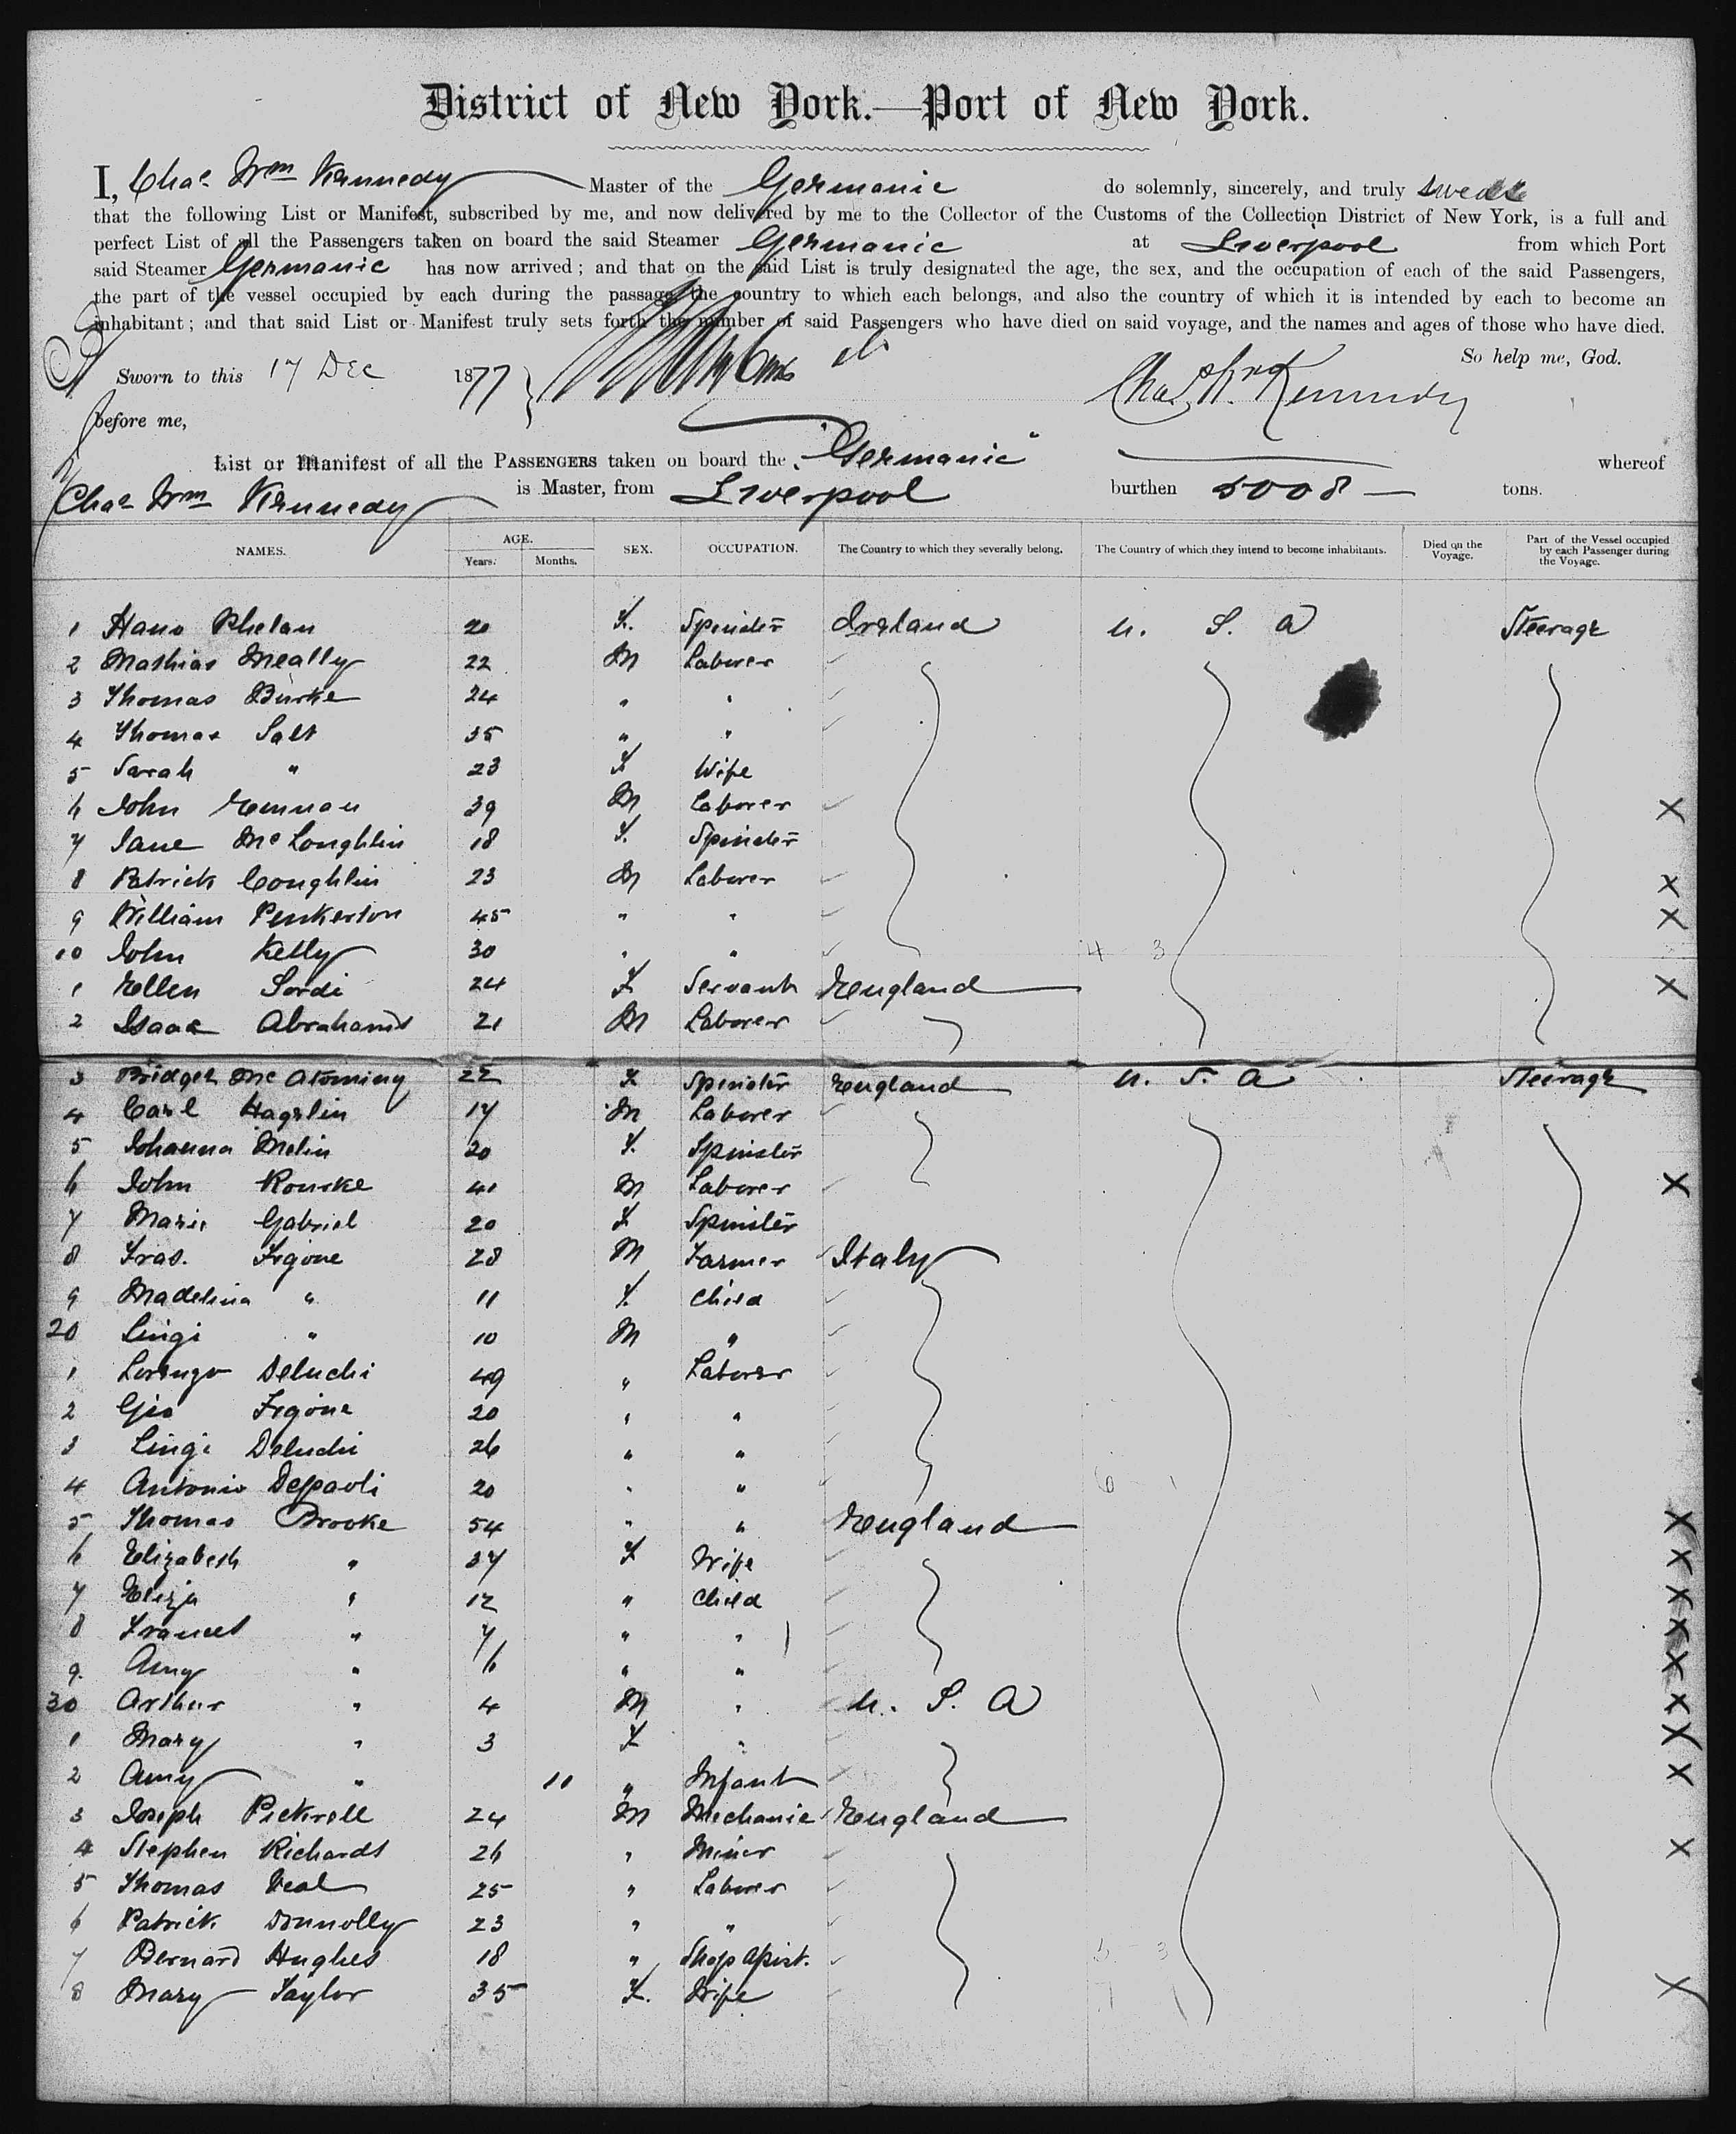 District of New York.—Port of New York.
I, Chas Wm Kennedy Master of the Germanic do solemnly, sincerely, and truly swear
that the following List or Manifest, subscribed by me, and now delivered by me to the Collector of the Customs of the Collection District of New York, is a full and
perfect List of all the Passengers taken on board the said Steamer Germanic at Liverpool from which Port
said Steamer Germanic has now arrived; and that on the said List is truly designated the age, the sex, and the occupation of each of the said Passengers,
the part of the vessel occupied by each during the passage, the country to which each belongs, and also the country of which it is intended by each to become an
inhabitant; and that said List or Manifest truly sets forth the number of said Passengers who have died on said voyage, and the names and ages of those who have died.
So help me, God.
Sworn to this 17 Dec 1877 Chas Wm Kennedy
before me,
List or Manifest of all the PASSENGERS taken on board the "Germanic" whereof
Chas Wm Kennedy is Master, from Liverpool burthen 5008 — tons.
NAMES. AGE. Years. Months. SEX. OCCUPATION. The Country to which they severally belong. The Country of which they intend to become inhabitants. Died on the Voyage. Part of the Vessel occupied by each Passenger during the Voyage.
1 Hano Phelan 20 F. Spinster Ireland U. S. A Steerage
2 Mathias Meally 22 M Laborer
3 Thomas Burke 24 " "
4 Thomas Salt 35 " "
5 Sarah " 23 F Wife
6 John 39 M Laborer X
7 Jane McLoughlin 18 F. Spinster
8 Patrick Coughlin 23 M Laborer X
9 William Penkerton 45 " " X
10 John Kelly 30 " " 4 3
1 Ellen Sordi 24 F Servant England X
2 Isaac Abrahams 21 M Laborer
3 Bridget 22 F Spinster England U. S. A Steerage
4 Carl Hagelin 17 M Laborer
5 Johanna Melin 20 F. Spinster
6 John Rourke 41 M Laborer X
7 Marie Gabriel 20 F Spinster
8 Fras. Figone 28 M Farmer Italy
9 Madelina " 11 F. Child
20 Luigi " 10 M "
1 Lorenzo Deluchi 49 " Laborer
2 Gio Figone 20 " "
3 Luigi Deluchi 26 " "
4 Antonio Depaoli 20 " " 6 1
5 Thomas Brooke 54 " " England X
6 Elizabeth " 37 F Wife X
7 Eliza " 12 " Child X
8 Frances " 7 " " X
9. Amy " 6 " " X
30 Arthur " 4 M " U. S. A X
1 Mary " 3 F " X
2 Amy " 11 " Infant X
3 Joseph Pickrell 24 M Mechanic England
4 Stephen Richards 26 " Miner X
5 Thomas Veal 25 " Laborer
6 Patrick Donnolly 23 " "
7 Bernard Hughes 18 " Shop Asist. 5 3
8 Mary Taylor 35 F. Wife X